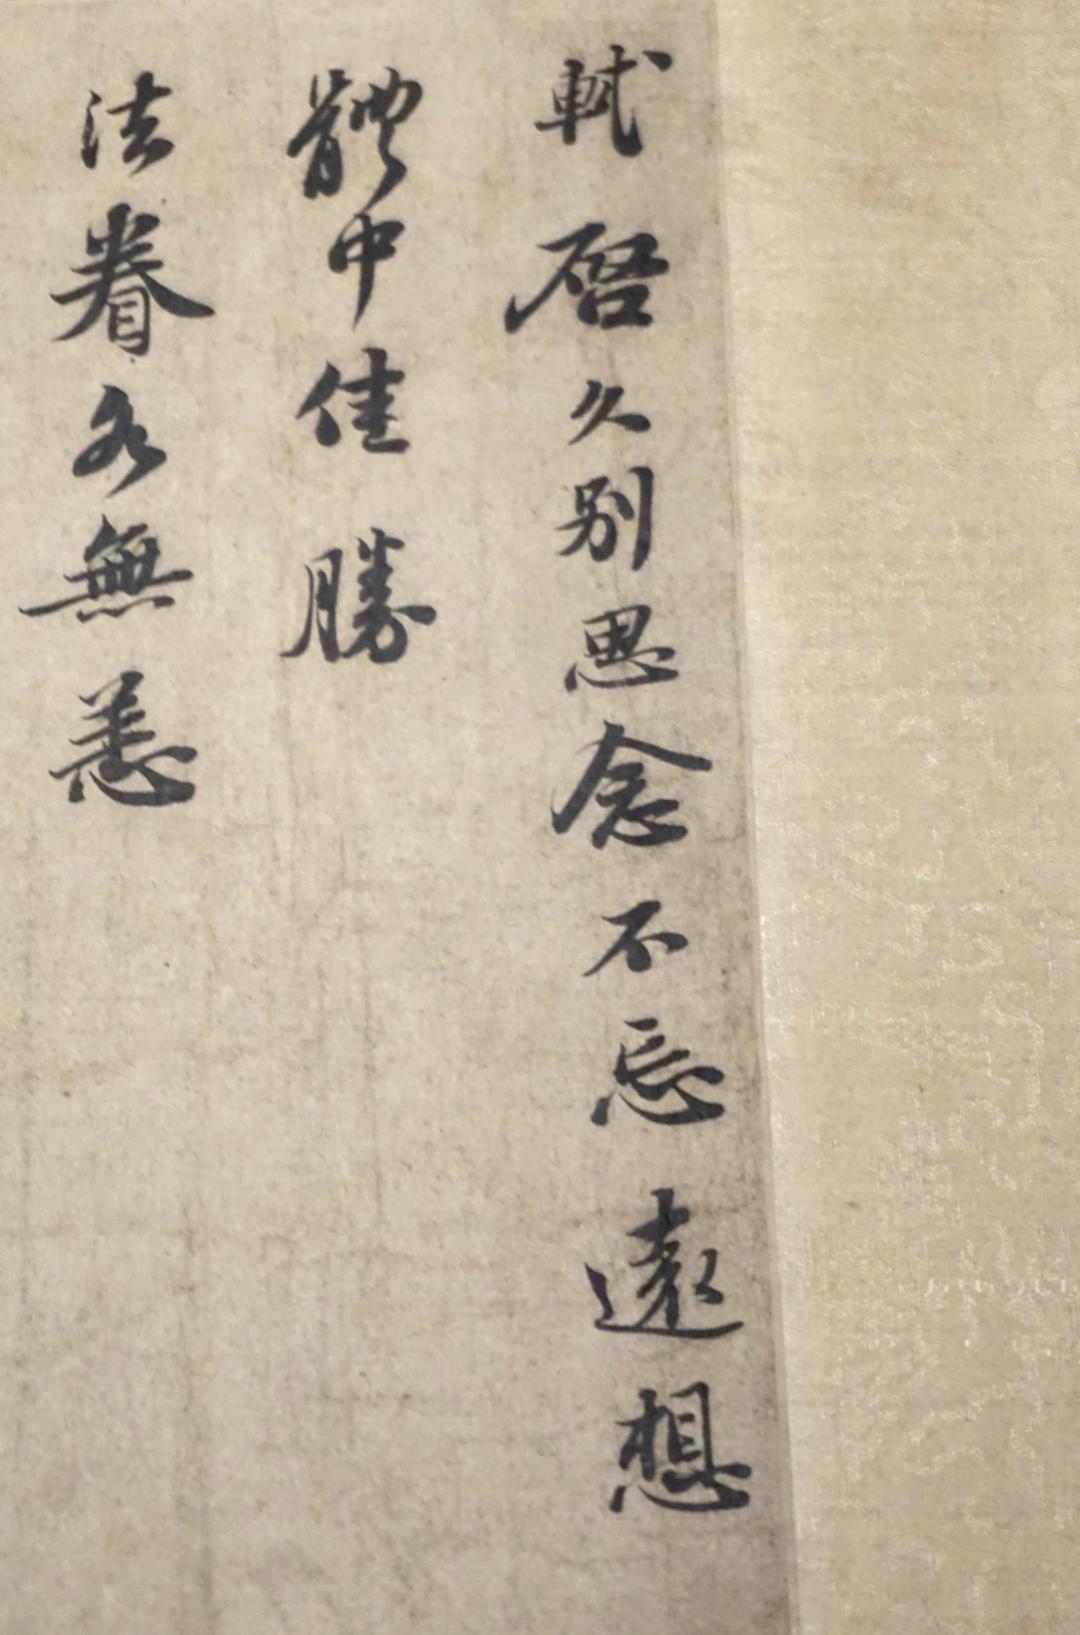 軾啓久別思念不忘遠想
體中佳勝
法眷各無恙